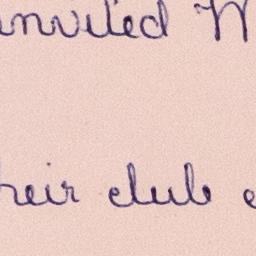 invited
their club